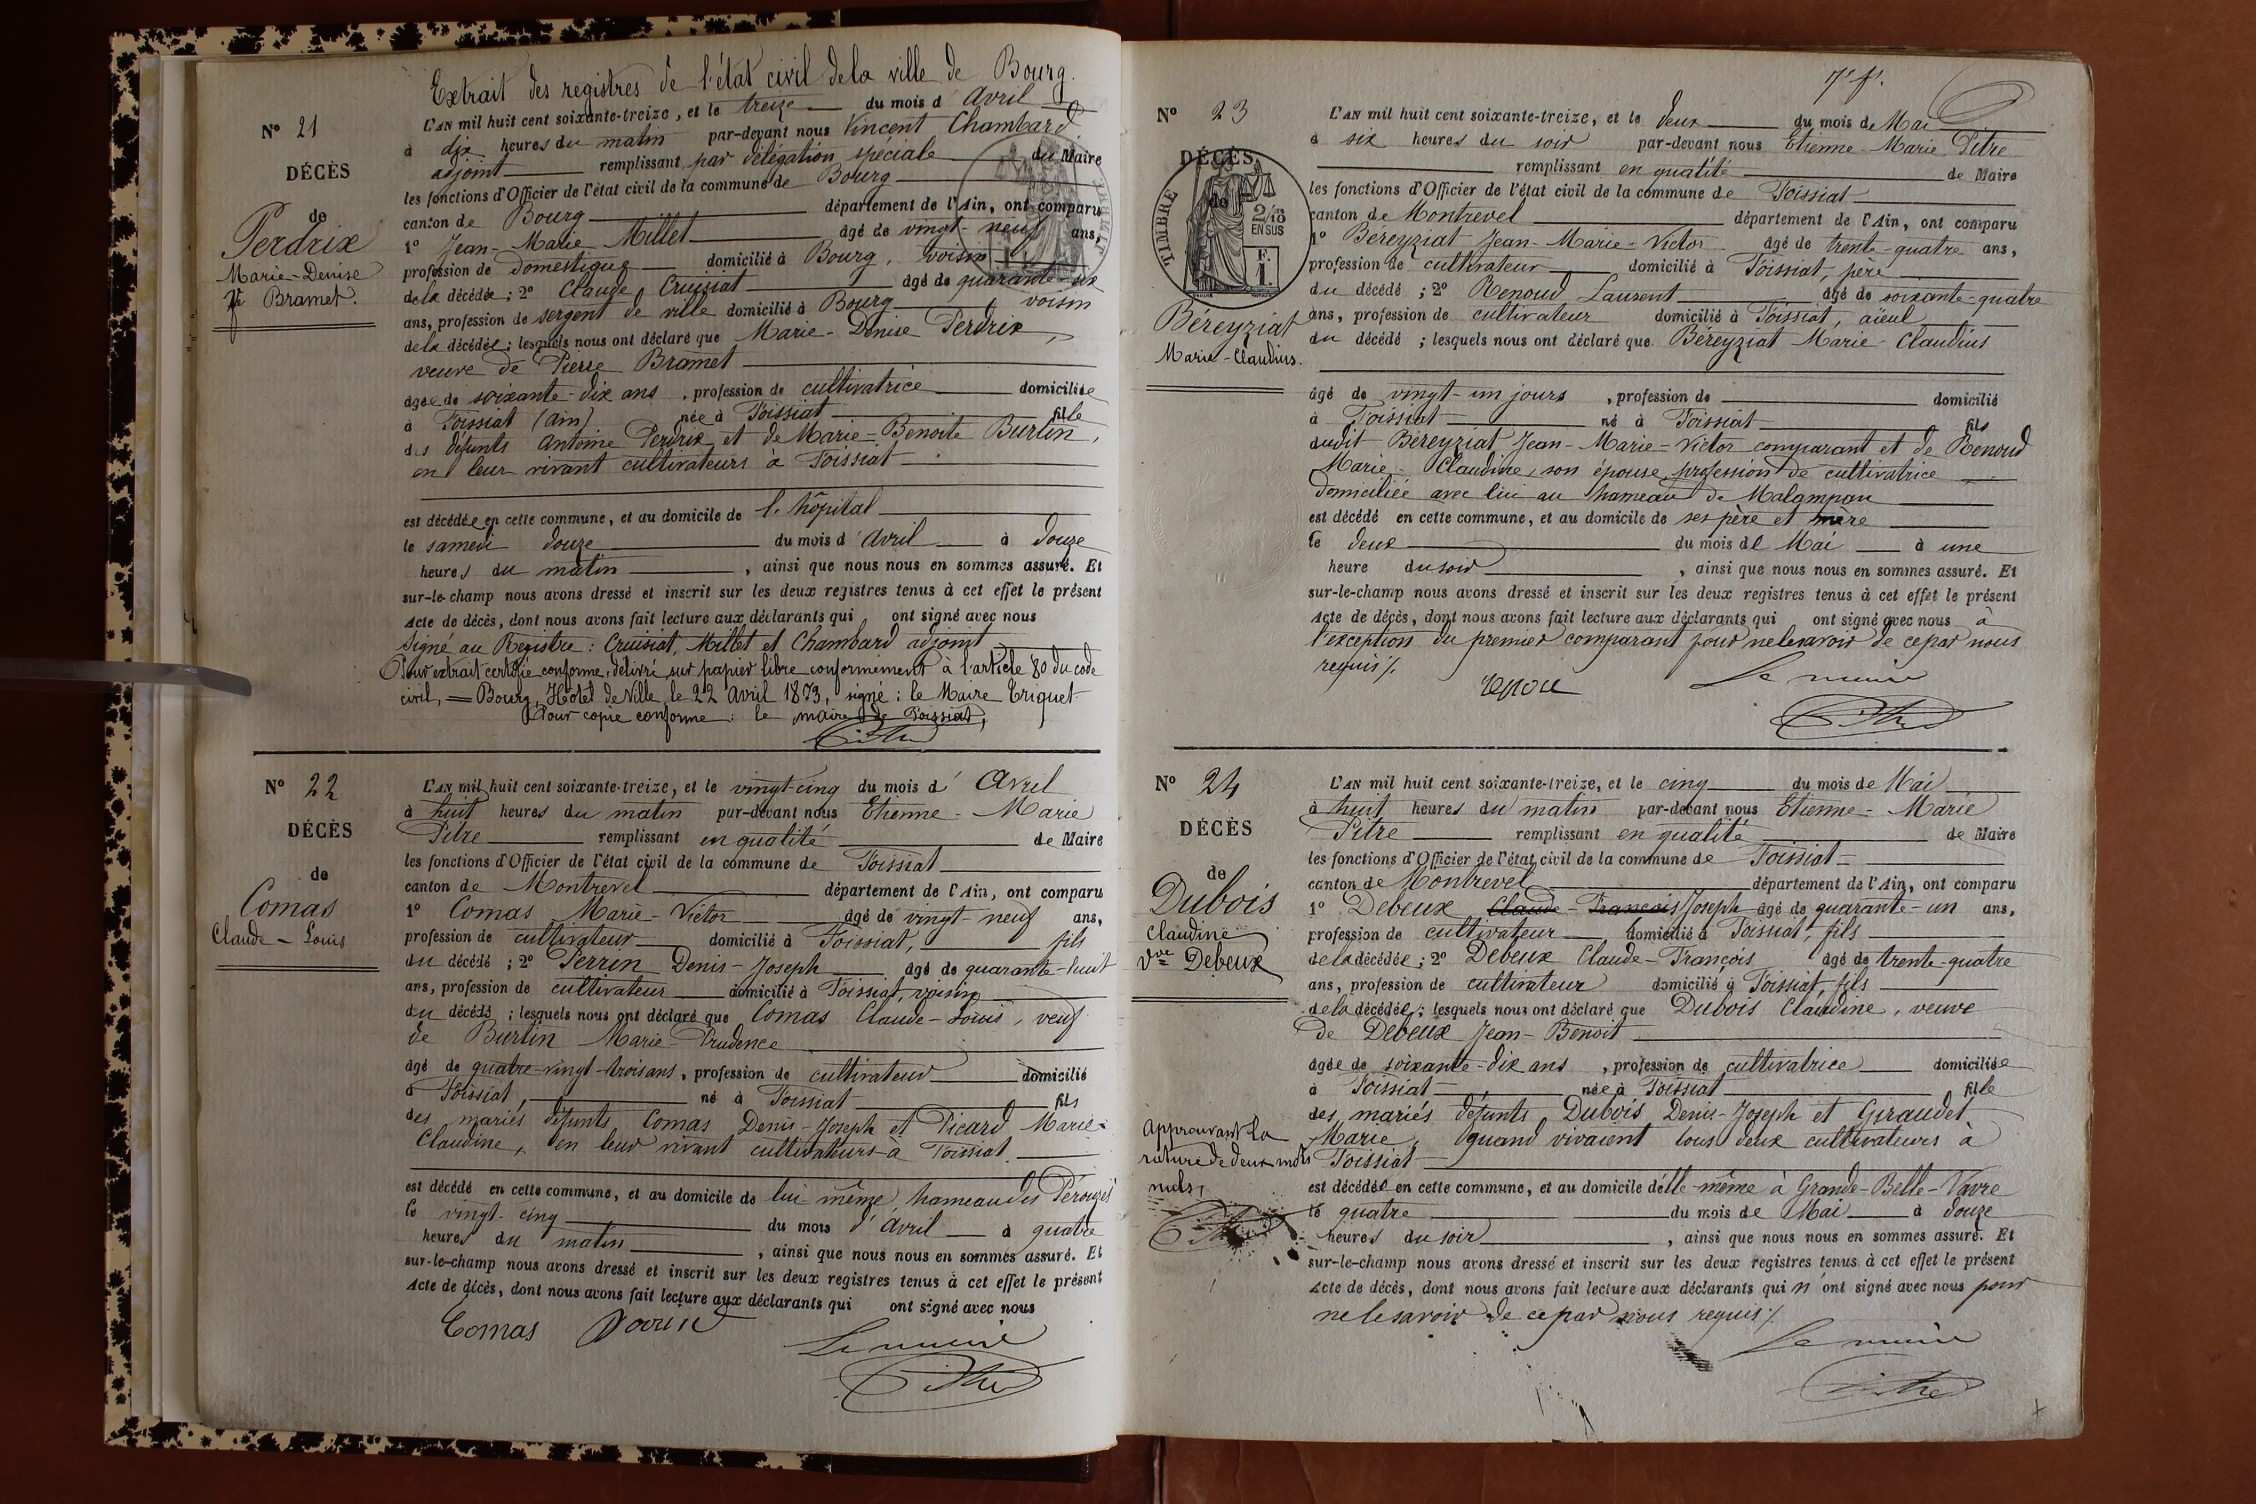 Extrait des registres de l'état civil de la ville de Bourg.
N° 21
DÉCÈS
de
Perdrix
Marie-Denise
Bramet.
L'AN mil huit cent soixante-treize, et le treize du mois d' Avril
à dix heures du matin par-devant nous Vincent Chambard
adjoint remplissant par délégation spéciale du Maire
les fonctions d'Officier de l'état civil de la commune de Bourg
canton de Bourg département de l'Ain, ont comparu
1° Jean-Marie Millet âgé de vingt-neuf ans,
profession de domestique domicilié à Bourg, voisin
de la décédée ; 2° Claude Cruisiat âgé de quarante-six
ans, profession de sergent de ville domicilié à Bourg, voisin
de la décédée ; lesquels nous ont déclaré que Marie-Denise Perdrix,
veuve de Pierre Bramet
âgée de soixante-dix ans, profession de cultivatrice domiciliée
à Foissiat (Ain) née à Foissiat fille
des défunts Antoine Perdrix et de Marie-Benoite Burtin,
en leur vivant cultivateurs à Foissiat
est décédée en cette commune, et au domicile de l'hôpital
le samedi douze du mois d'Avril à douze
heures du matin, ainsi que nous nous en sommes assuré. Et
sur-le-champ nous avons dressé et inscrit sur les deux registres tenus à cet effet le présent
Acte de décès, dont nous avons fait lecture aux déclarants qui ont signé avec nous
Signé au Registre : Cruisiat, Millet et Chambard adjoint
Pour extrait certifié conforme, délivré sur papier libre conformément à l'article 80 du code
civil, = Bourg, Hôtel de Ville, le 22 Avril 1873, signé : le Maire Triquet
Pour copie conforme : le maire de Foissiat,
Pitre
N° 22
DÉCÈS
de
Comas
Claude-Louis
L'AN mil huit cent soixante-treize, et le vingt-cinq du mois d' Avril
à huit heures du matin par-devant nous Etienne-Marie
Pitre remplissant en qualité de Maire
les fonctions d'Officier de l'état civil de la commune de Foissiat
canton de Montrevel département de l'Ain, ont comparu
1° Comas Marie-Victor âgé de vingt-neuf ans,
profession de cultivateur domicilié à Foissiat, fils
du décédé ; 2° Perrin Denis-Joseph âgé de quarante-huit
ans, profession de cultivateur domicilié à Foissiat, voisin
du décédé ; lesquels nous ont déclaré que Comas Claude-Louis, veuf
de Burtin Marie-Prudence
âgé de quatre-vingt-trois ans, profession de cultivateur domicilié
à Foissiat, né à Foissiat fils
des mariés défunts Comas Denis-Joseph et Picard Marie-
Claudine, en leur vivant cultivateurs à Foissiat
est décédé en cette commune, et au domicile de lui-même, hameau des Pérouges
le vingt-cinq du mois d'Avril à quatre
heures du matin, ainsi que nous nous en sommes assuré. Et
sur-le-champ nous avons dressé et inscrit sur les deux registres tenus à cet effet le présent
Acte de décès, dont nous avons fait lecture aux déclarants qui ont signé avec nous
Comas Perrin
Le maire
Pitre
7e f.
N° 23
DÉCÈS
de
TIMBRE
2/10 EN SUS
Béreyziat
Marie-Claudius.
L'AN mil huit cent soixante-treize, et le deux du mois de Mai
à six heures du soir par-devant nous Etienne-Marie Pitre
remplissant en qualité de Maire
les fonctions d'Officier de l'état civil de la commune de Foissiat
canton de Montrevel département de l'Ain, ont comparu
1° Béreyziat Jean-Marie-Victor âgé de trente-quatre ans,
profession de cultivateur domicilié à Foissiat, père
du décédé ; 2° Renoud Laurent âgé de soixante-quatre
ans, profession de cultivateur domicilié à Foissiat, aïeul
du décédé ; lesquels nous ont déclaré que Béreyziat Marie-Claudius
âgé de vingt-un jours, profession de domicilié
à Foissiat né à Foissiat fils
dudit Béreyziat Jean-Marie-Victor comparant et de Renoud
Marie-Claudine, son épouse, profession de cultivatrice
domiciliée avec lui au hameau de Malampau
est décédé en cette commune, et au domicile de ses père et mère
le deux du mois de Mai à une
heure du soir, ainsi que nous nous en sommes assuré. Et
sur-le-champ nous avons dressé et inscrit sur les deux registres tenus à cet effet le présent
Acte de décès, dont nous avons fait lecture aux déclarants qui ont signé avec nous à
l'exception du premier comparant pour ne le savoir de ce par nous
requis /.
Le maire
Pitre
N° 24
DÉCÈS
de
Dubois
Claudine
Vve Debeux
Approuvant la
rature de deux mots
nuls,
Pitre
L'AN mil huit cent soixante-treize, et le cinq du mois de Mai
à huit heures du matin par-devant nous Etienne-Marie
Pitre remplissant en qualité de Maire
les fonctions d'Officier de l'état civil de la commune de Foissiat
canton de Montrevel département de l'Ain, ont comparu
1° Debeux Claude-François Joseph âgé de quarante-un ans,
profession de cultivateur domicilié à Foissiat, fils
de la décédée ; 2° Debeux Claude-François âgé de trente-quatre
ans, profession de cultivateur domicilié à Foissiat, fils
de la décédée ; lesquels nous ont déclaré que Dubois Claudine, veuve
de Debeux Jean-Benoit
âgée de soixante-dix ans, profession de cultivatrice domiciliée
à Foissiat née à Foissiat fille
des mariés défunts Dubois Denis-Joseph et Giraudet
Marie, quand vivaient tous deux cultivateurs à
Foissiat
est décédée en cette commune, et au domicile d'elle-même à Grande-Belle-Vavre
le quatre du mois de Mai à douze
heures du soir, ainsi que nous nous en sommes assuré. Et
sur-le-champ nous avons dressé et inscrit sur les deux registres tenus à cet effet le présent
Acte de décès, dont nous avons fait lecture aux déclarants qui n'ont signé avec nous pour
ne le savoir de ce par nous requis /.
Le maire
Pitre